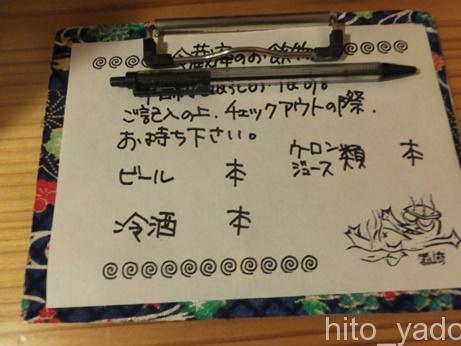 冷蔵庫のお飲物
ご記入の上、チェックアウトの際、
お持ち下さい。
ビール 本
ウーロン ジュース 類 本
冷酒 本
hito_yado